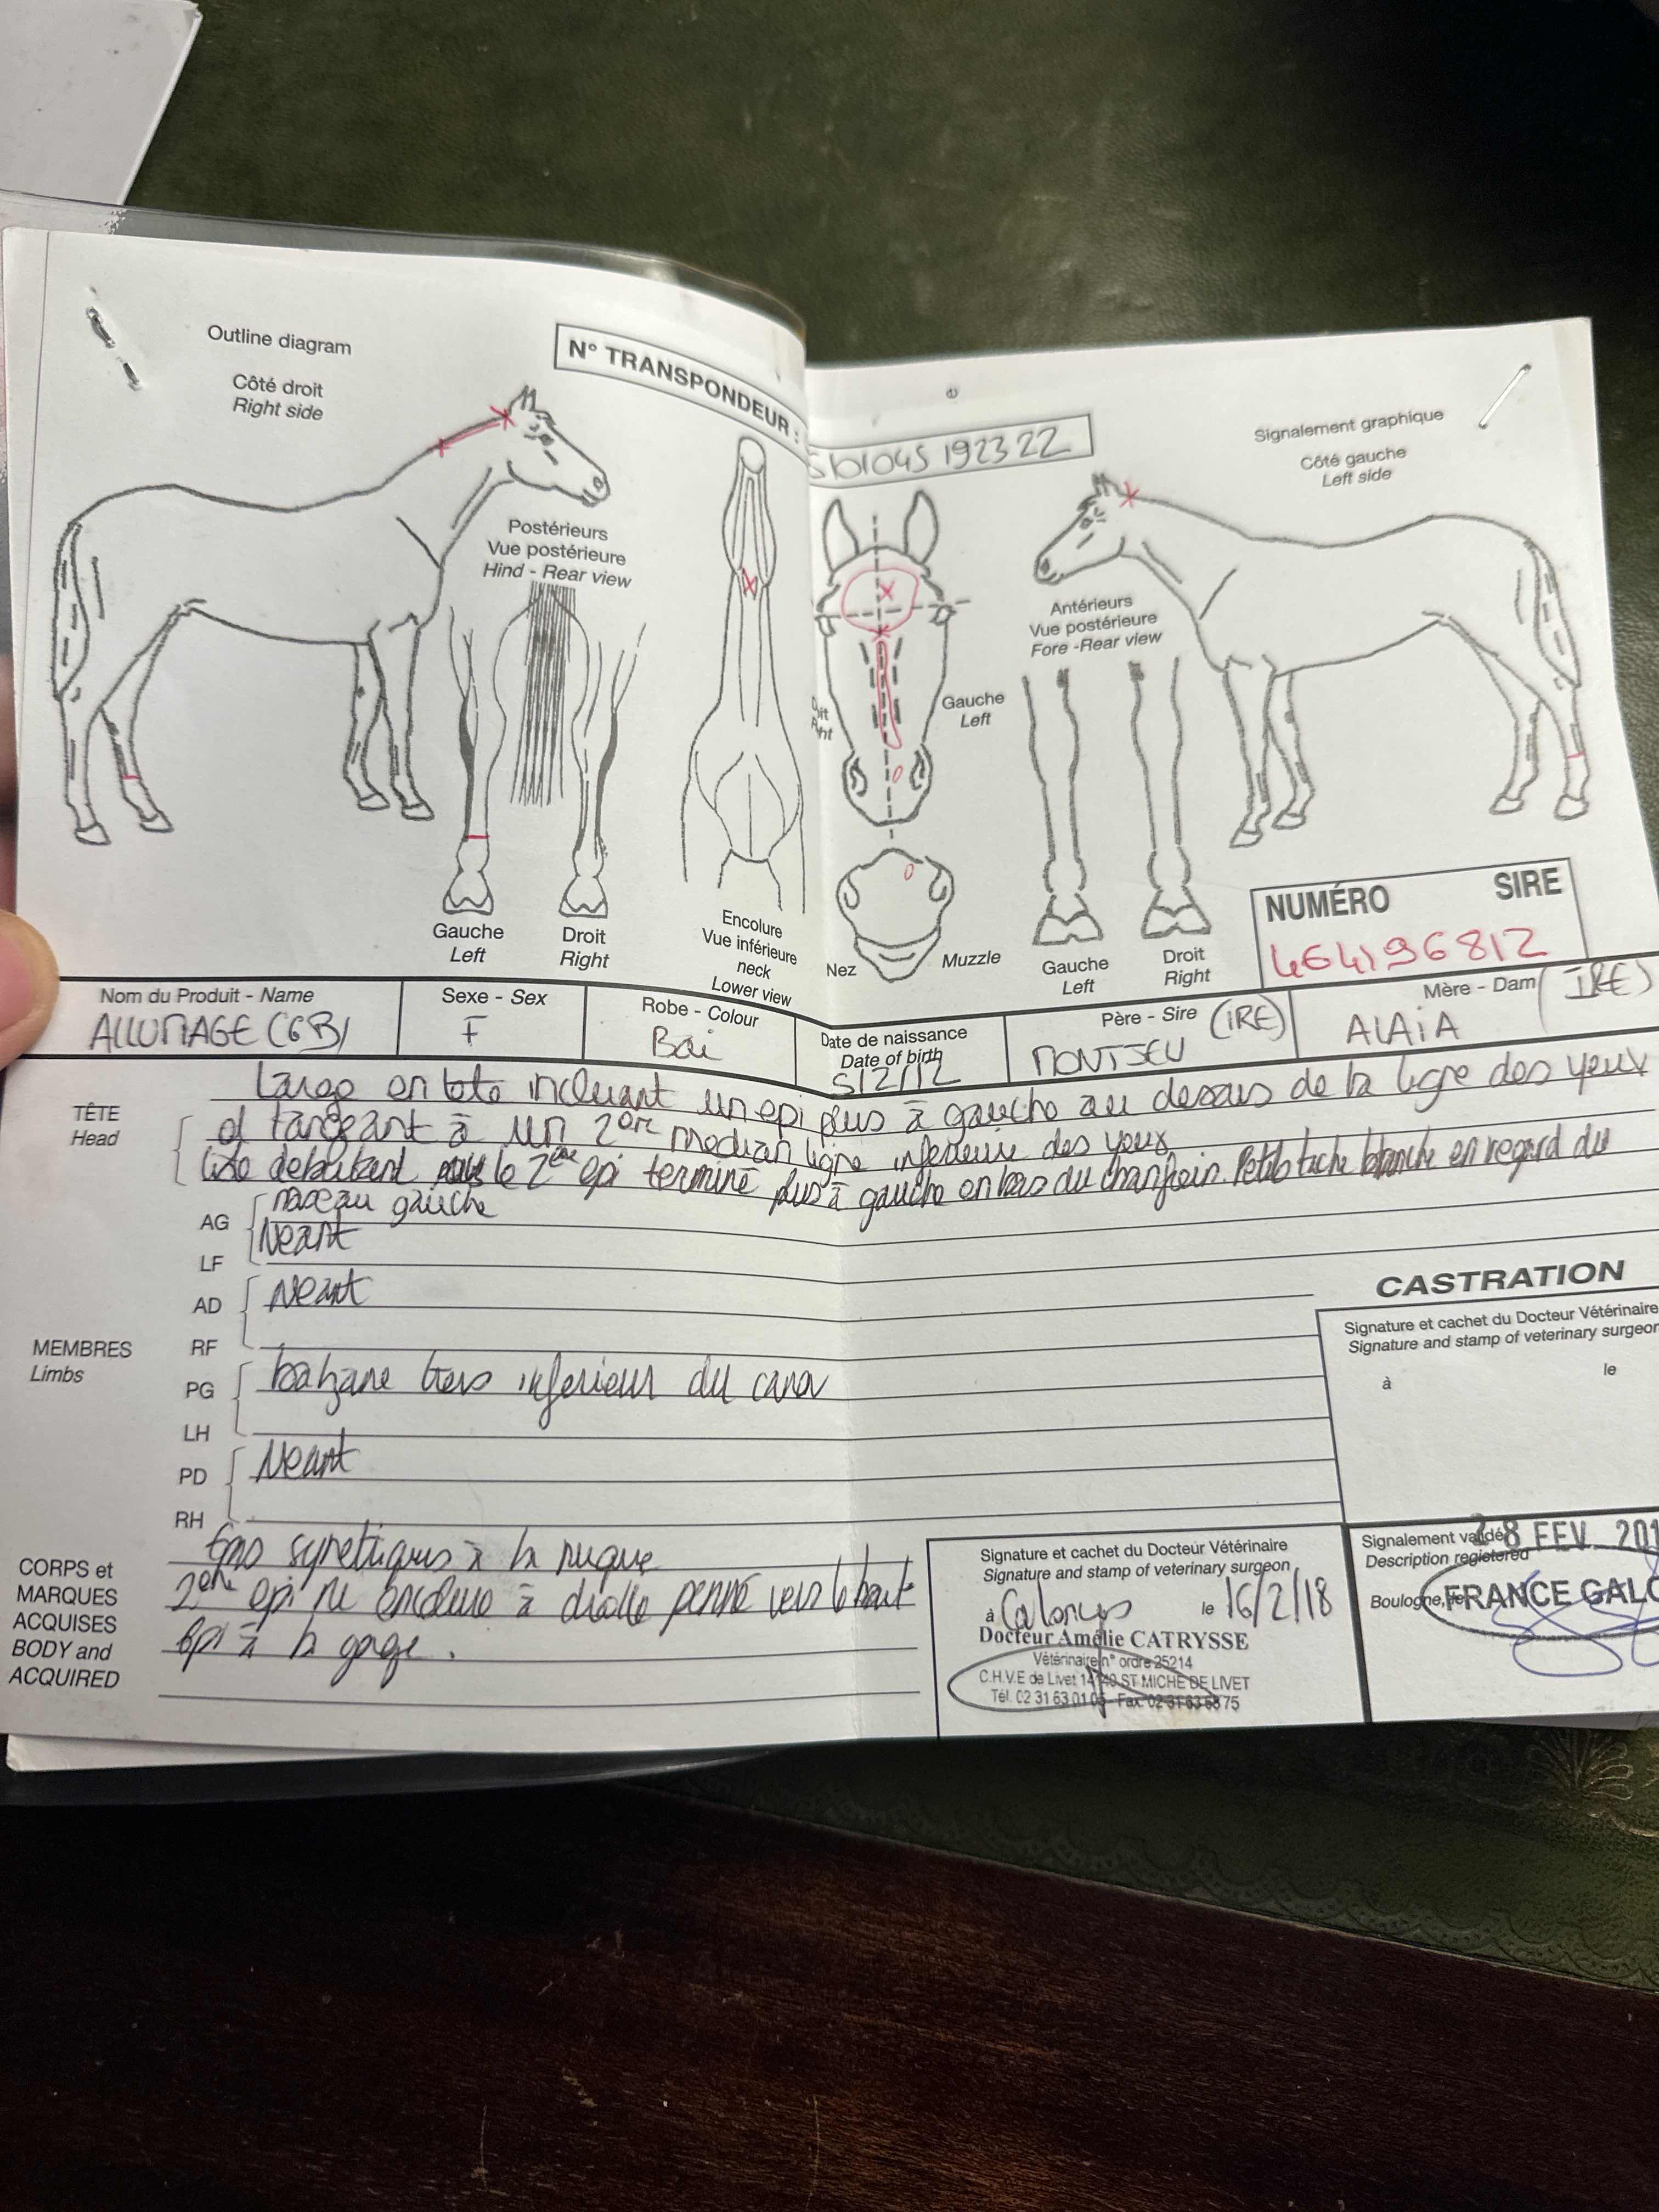 Outline diagram
Côté droit
Right side
N° TRANSPONDEUR :
192322
Signalement graphique
Côté gauche
Left side
Postérieurs
Vue postérieure
Hind - Rear view
Antérieurs
Vue postérieure
Fore -Rear view
Gauche
Left
Gauche
Left
Droit
Right
Encolure
Vue inférieure
neck
Lower view
Nez
Muzzle
Gauche
Left
Droit
Right
NUMÉRO SIRE
Nom du Produit - Name
ALLUMAGE (GB)
Sexe - Sex
F
Robe - Colour
Bai
Date de naissance
Date of birth
5/2/12
Père - Sire (IRE)
MONTJEU
Mère - Dam (IRE)
ALAIA
TÊTE
Head
Large en tete incluant un epi plus à gauche au dessus de la ligne des yeux
et tangeant à un 2ème median ligne inferieure des yeux
liste debutant sous le 2ème epi terminé plus à gauche en bas du chanfrein. Petite tache blanche en regard du
naseau gauche
AG
Neant
LF
AD
Neant
RF
MEMBRES
Limbs
PG
balzane tiers inferieur du canon
LH
PD
Neant
RH
CORPS et
MARQUES
ACQUISES
BODY and
ACQUIRED
Epis symetriques à la nuque
2ème epi encolure à droite penné vers le haut
Epi à la gorge.
CASTRATION
Signature et cachet du Docteur Vétérinaire
Signature and stamp of veterinary surgeon
à le
Signature et cachet du Docteur Vétérinaire
Signature and stamp of veterinary surgeon
à le 16/2/18
Docteur Amélie CATRYSSE
Vétérinaire n° ordre 25214
C.H.V.E de Livet 14140 ST MICHE DE LIVET
Tél. 02 31 63 01 05 - Fax. 02 31 63 58 75
Signalement validé
Description registered
28 FEV. 201
Boulogne, le
FRANCE GALO